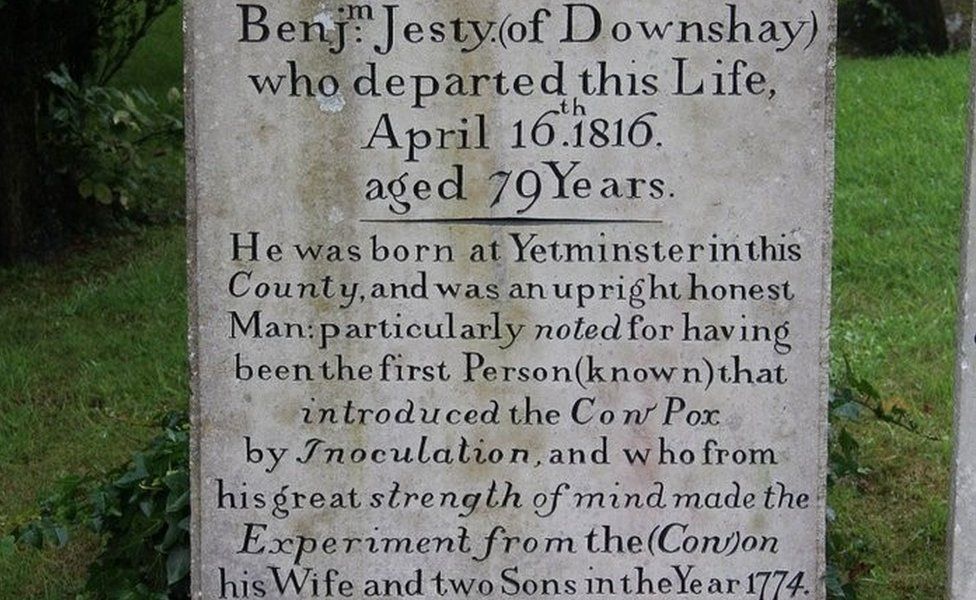 Benj.m Jesty.(of Downshay)
who departed this Life,
April 16.th 1816.
aged 79 Years.
He was born at Yetminster in this
County, and was an upright honest
Man: particularly noted for having
been the first Person (known) that
introduced the Cow Pox
by Inoculation, and who from
his great strength of mind made the
Experiment from the (Cow) on
his Wife and two Sons in the Year 1774.